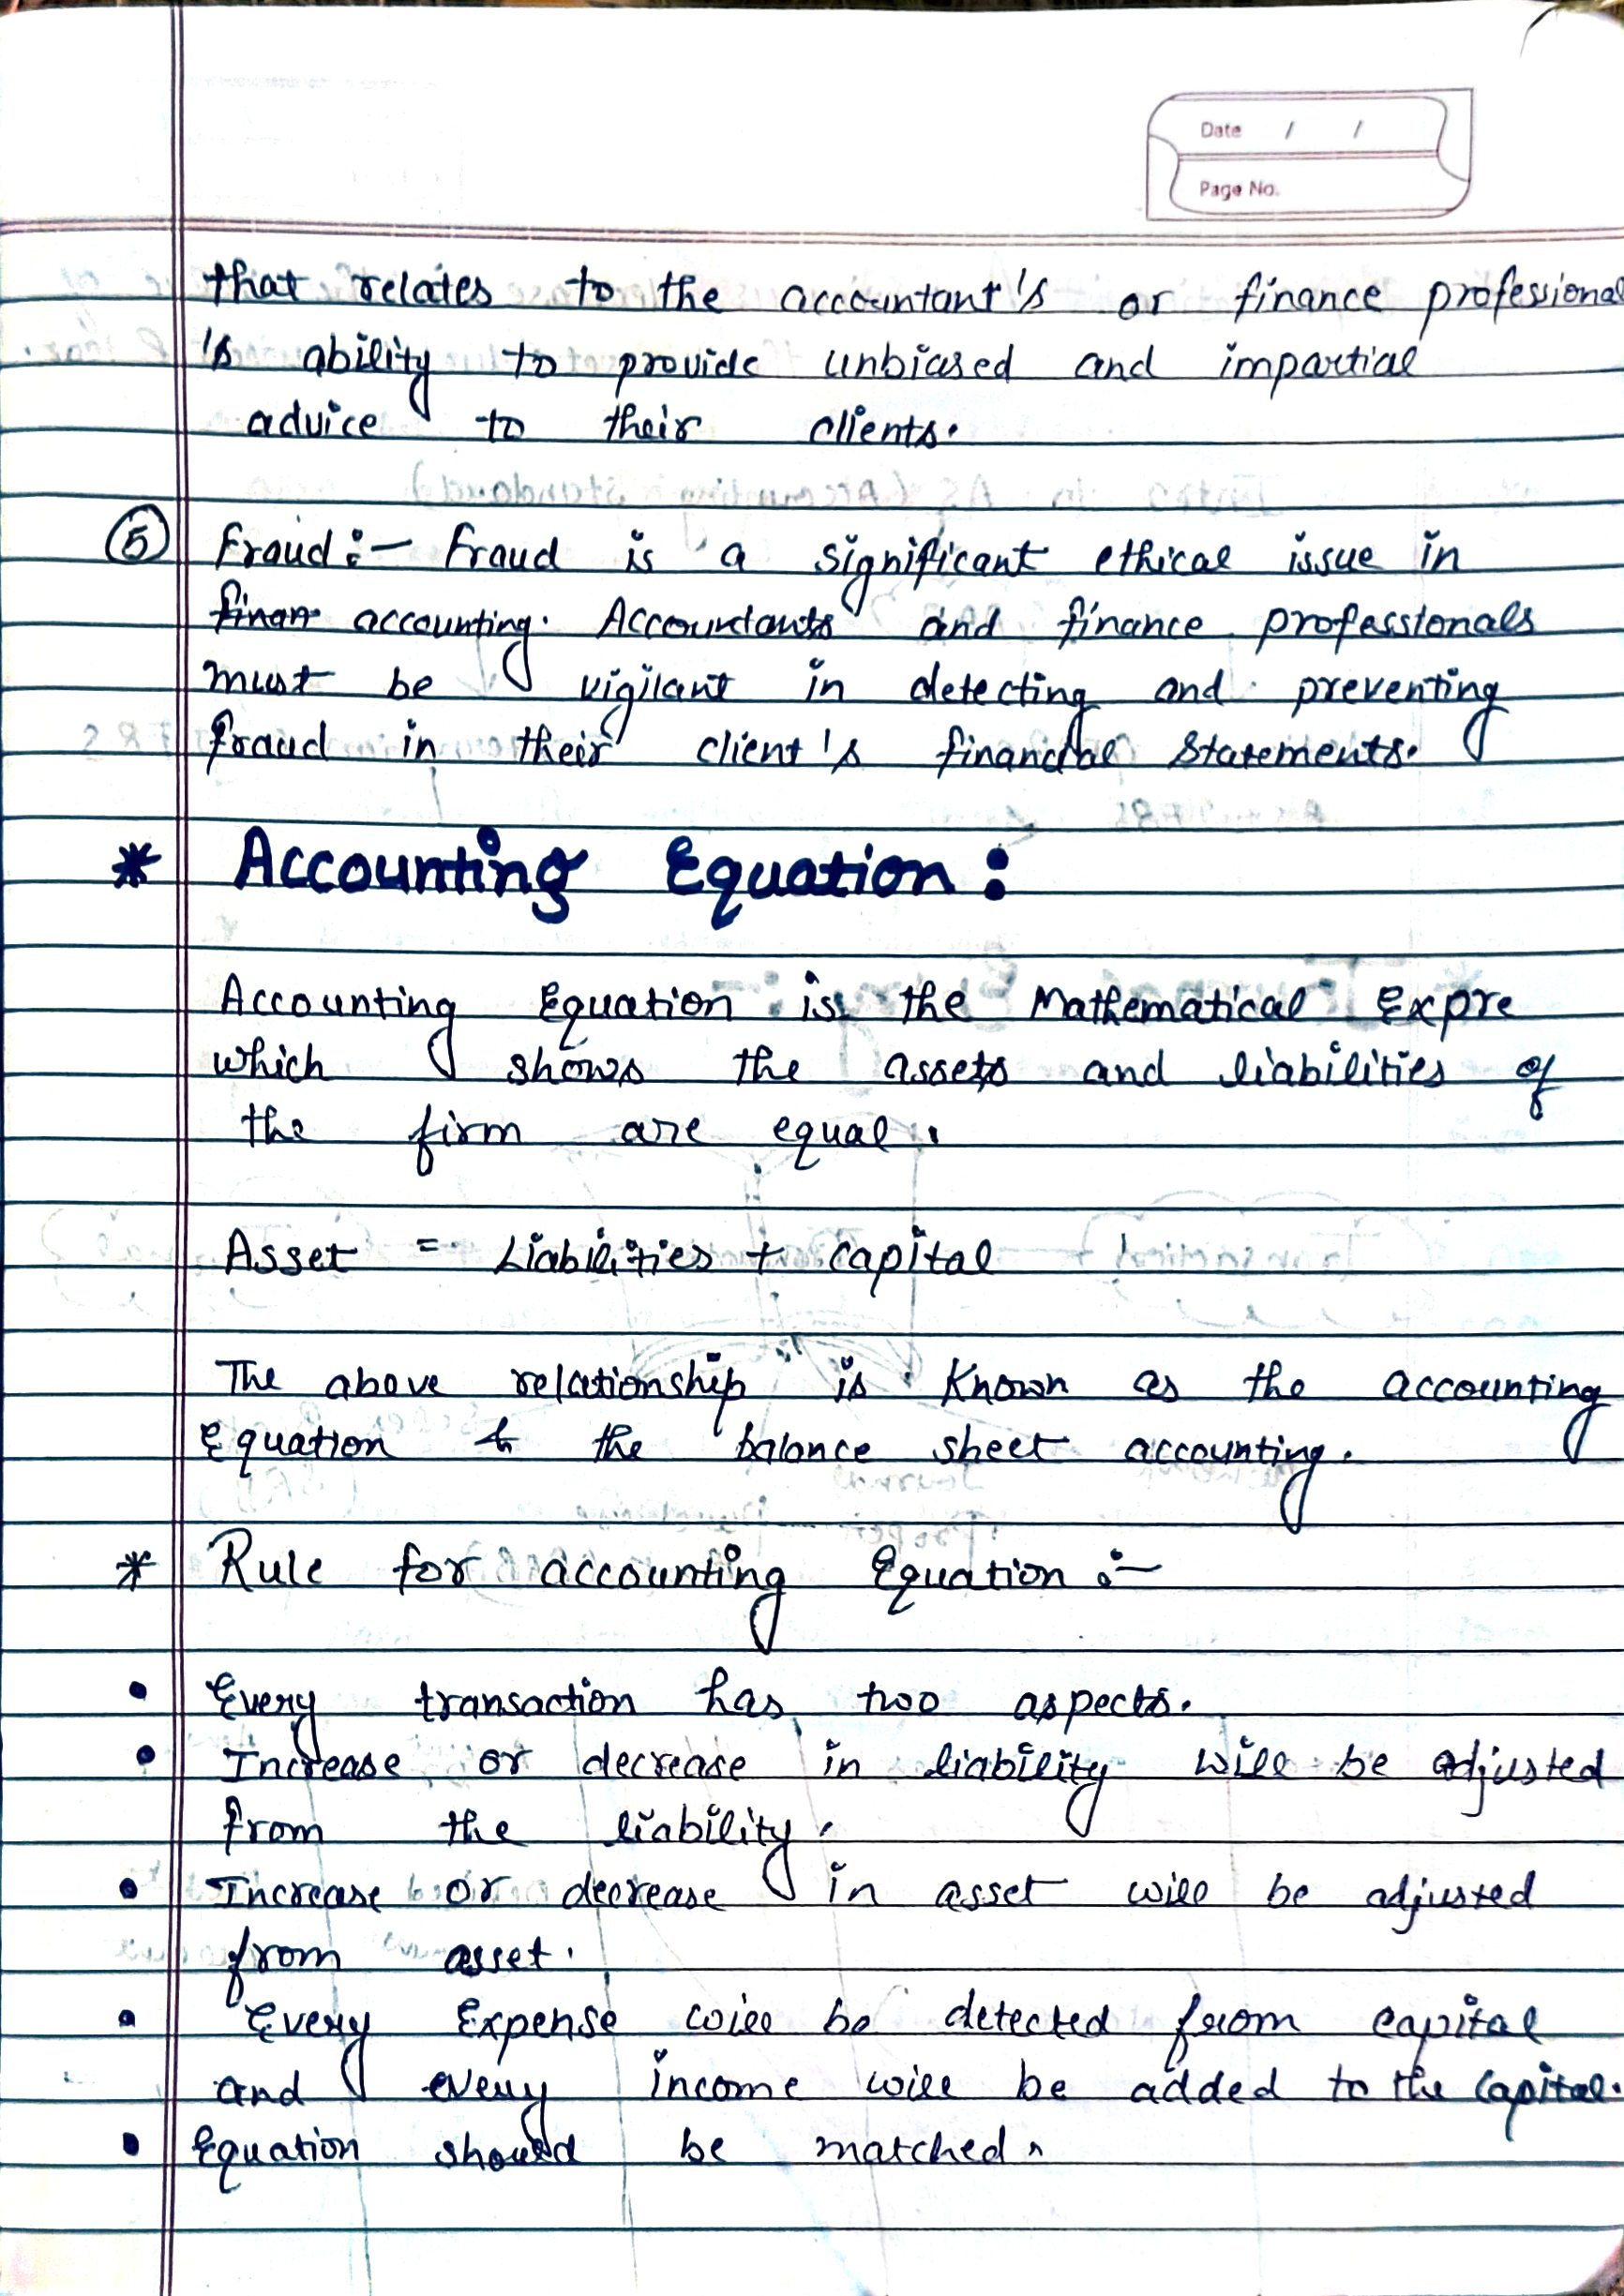 Date / /
Page No.
that relates to the accountant's or finance professional
's ability to provide unbiased and impartial
advice to their clients.
5 Fraud :- Fraud is a significant ethical issue in
finan accounting. Accountants and finance professionals
must be vigilant in detecting and preventing
fraud in their client's financial statements.
* Accounting Equation :
Accounting Equation is the Mathematical Expre
which shows the assets and liabilities of
the firm are equal.
Asset = Liabilities + capital
The above relationship is known as the accounting
Equation & the balance sheet accounting.
* Rule for accounting Equation :-
• Every transaction has two aspects.
• Increase or decrease in liability will be adjusted
from the liability.
• Increase or decrease in asset will be adjusted
from asset.
• Every Expense will be detected from capital
and every income will be added to the capital.
• Equation should be matched.